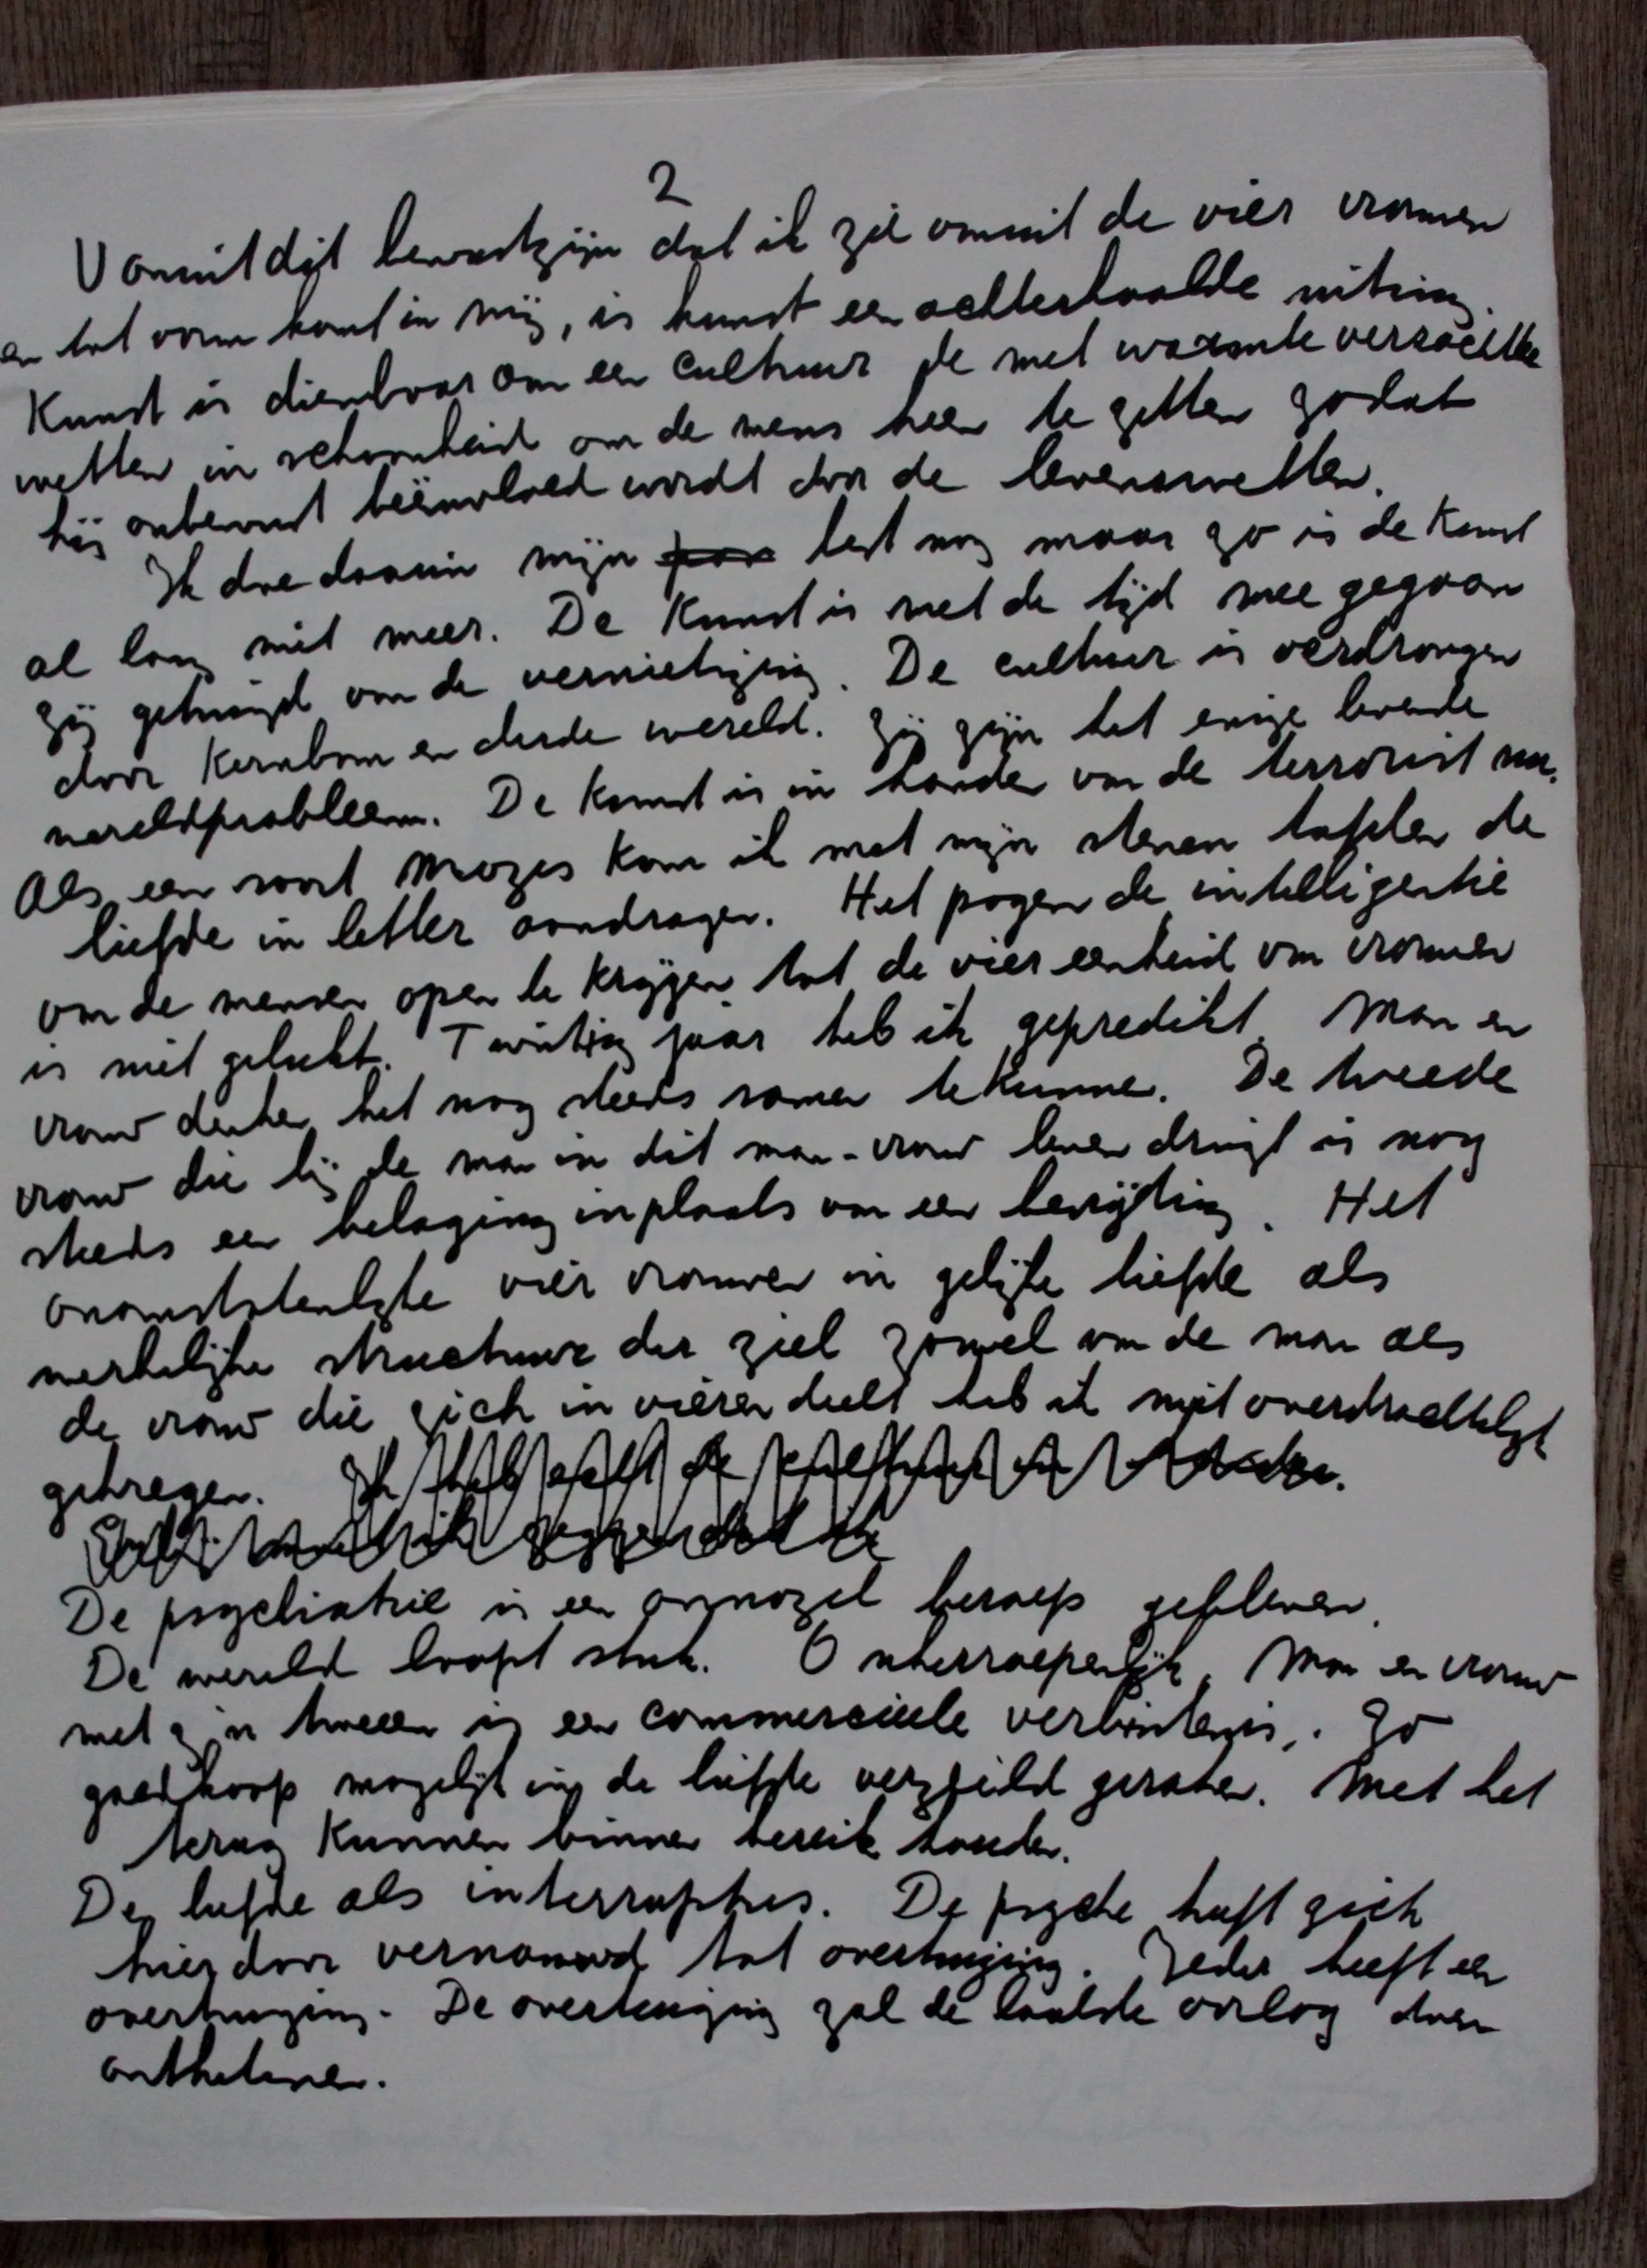 2
Vanuit dit bewustzijn dat ik zie vanuit de vier vrouwen
en tot vorm komt in mij, is kunst een achterhaalde uiting.
Kunst is dienbaar om een cultuur de met warmte verzachtte
wetten in schoonheid om de mens heen te zetten zodat
hij onbewust beïnvloed wordt door de levenswetten.
Ik doe daarin mijn best nog maar zo is de Kunst
al lang niet meer. De Kunst is met de tijd mee gegaan
zij getuigd van de vernietiging. De cultuur is verdrongen
door Kernbom en derde wereld. Zij zijn het enige levende
wereldprobleem. De Kunst is in handen van de terrorist nu.
Als een soort Mozes kom ik met mijn stenen tafelen de
liefde in letter aandragen. Het pogen de intelligentie
van de mensen open te krijgen tot de viereenheid van vrouwen
is niet gelukt. Twintig jaar heb ik gepredikt. Man en
vrouw denken het nog steeds samen te kunnen. De tweede
vrouw die bij de man in dit man-vrouw leven dringt is nog
steeds een belaging inplaats van een bevrijding. Het
onomstotelijke vier vrouwen in gelijke liefde als
werkelijke structuur der ziel zowel van de man als
de vrouw die zich in vieren deelt heb ik niet overdrachtelijk
gekregen.
De psychiatrie is een onnozel beroep gebleven.
De wereld loopt stuk. Onherroepelijk. Man en vrouw
met zijn tweeen is een commerciele verbintenis. Zo
goedkoop mogelijk in de liefde verzeild geraken. Met het
terug Kunnen binnen bereik houden.
De liefde als interruptus. De psyche heeft zich
hierdoor vernauwd tot overtuiging. Ieder heeft een
overtuiging. De overtuiging zal de laatste oorlog doen
ontketenen.